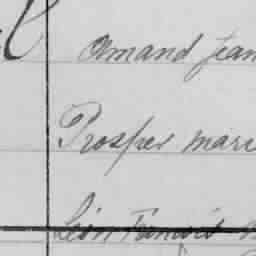 Amand Jean
Prosper Marie
Léon François